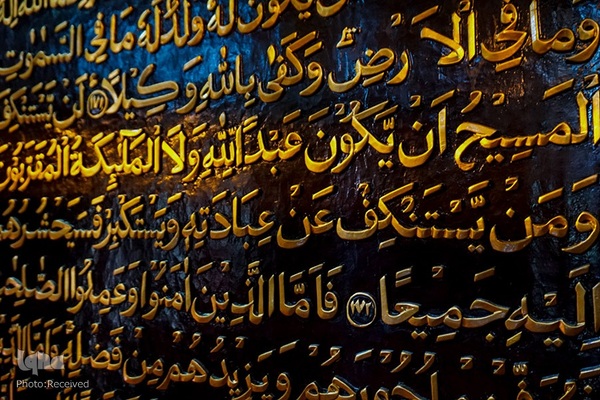 يَكُونَ لَهُ وَلَدٌ لَهُ مَا فِي السَّمٰوَاتِ
وَمَا فِي الْاَرْضِ وَكَفٰى بِاللّٰهِ وَكِيلًا ﴿١٧١﴾ لَنْ يَسْتَنْكِفَ
الْمَسِيحُ اَنْ يَكُونَ عَبْدًا لِلّٰهِ وَلَا الْمَلٰٓئِكَةُ الْمُقَرَّبُونَ
وَمَنْ يَسْتَنْكِفْ عَنْ عِبَادَتِهٖ وَيَسْتَكْبِرْ فَسَيَحْشُرُهُمْ
اِلَيْهِ جَمِيعًا ﴿١٧٢﴾ فَاَمَّا الَّذِينَ اٰمَنُوا وَعَمِلُوا الصَّالِحَاتِ
اُجُورَهُمْ وَيَزِيدُهُمْ مِنْ فَضْلِهٖ وَاَمَّا الَّذِينَ
Photo:Received